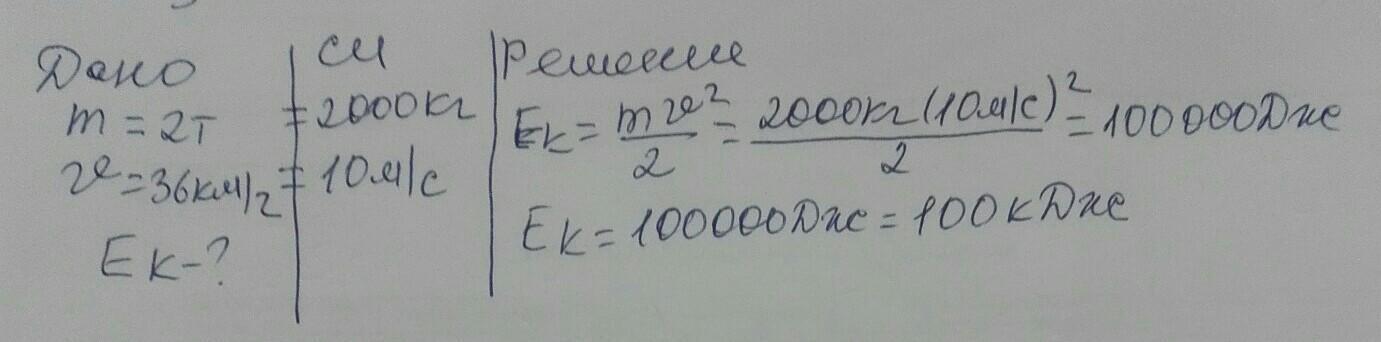 Дано
m = 2т
v = 36 км/ч
Eк - ?
СИ
= 2000 кг
= 10 м/с
Решение
Eк = mv²/2 = 2000 кг (10 м/с)²/2 = 100000 Дж
Eк = 100000 Дж = 100 кДж